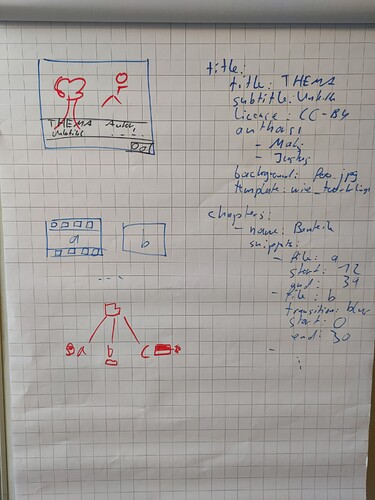 THEMA Autor
a
b
a b c
title:
title: THEMA
subtitle:
license: CC-BY
authors:
-
-
background: foo.jpg
template:
chapters:
- name:
snippets:
- file: a
start: 12
end: 34
- file: b
transition: blur
start: 0
end: 30
-